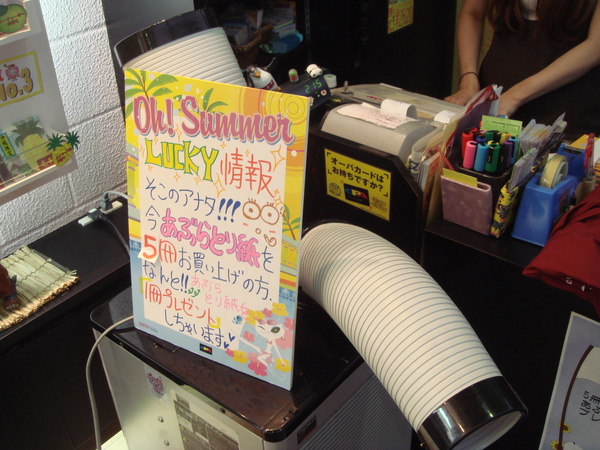 Oh! Summer
LUCKY 情報
そこのアナタ!!!
今あぶらとり紙を
5冊お買い上げの方、
なんと!!あぶら
とり紙を
1冊プレゼント
しちゃいます♥
オーバカードは
お持ちですか?
2:15
No.3